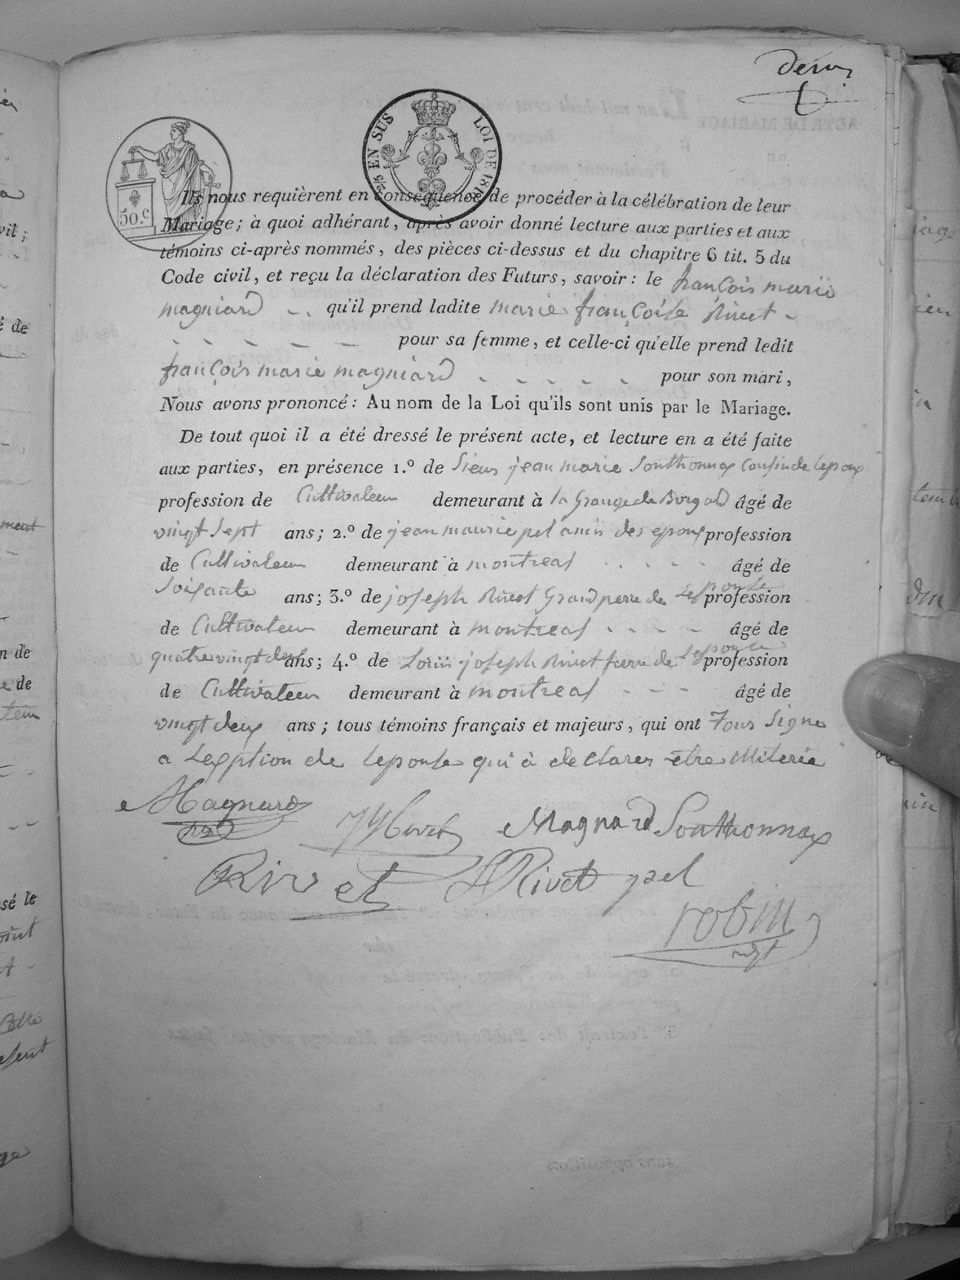 EN SUS LOI DE 1816
50.c
Ils nous requièrent en conséquence de procéder à la célébration de leur
Mariage; à quoi adhérant, après avoir donné lecture aux parties et aux
témoins ci-après nommés, des pièces ci-dessus et du chapitre 6 tit. 5 du
Code civil, et reçu la déclaration des Futurs, savoir: le françois marie
magniard qu'il prend ladite marie françoise Rivet
pour sa femme, et celle-ci qu'elle prend ledit
françois marie magniard pour son mari,
Nous avons prononcé: Au nom de la Loi qu'ils sont unis par le Mariage.
De tout quoi il a été dressé le présent acte, et lecture en a été faite
aux parties, en présence 1.º de Sieur jean marie Sonthonnax Cousin de lepoux
profession de Cultivateur demeurant à la Grange de âgé de
vingt Sept ans; 2.º de jean maurice pel amis des epoux profession
de Cultivateur demeurant à montreal âgé de
Soixante ans; 3.º de joseph Rivet Grand pere de lepouse profession
de Cultivateur demeurant à montreal âgé de
quatre vingt deux ans; 4.º de joseph Rivet frere de lepouse profession
de Cultivateur demeurant à montreal âgé de
vingt deux ans; tous témoins français et majeurs, qui ont Tous Signe
a lexption de lepouse qui à declarer etre
Magnard
Rivet Magnard Sonthonnax
Rivet Rivet pel
robin